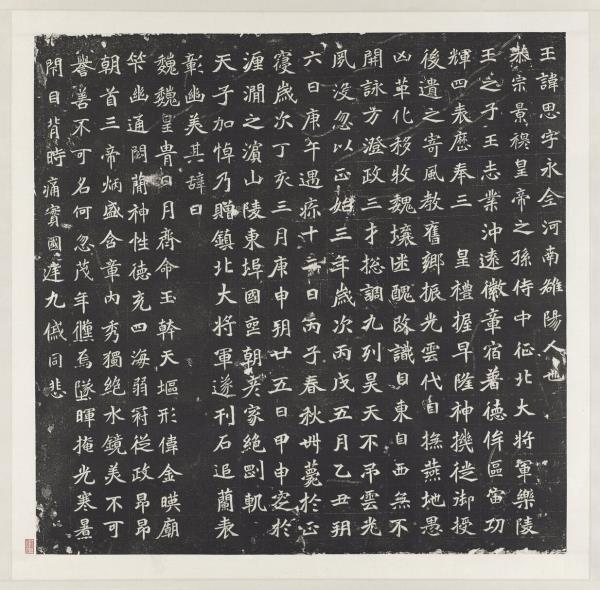 王諱思字永全河南雒陽人也
恭宗景穆皇帝之孫侍中征北大將軍樂陵
王之子王志業沖遠徽章宿著德侔區宙功
輝四表歷奉三 皇禮握早隆神機徙御授
後遺之寄風教舊鄉振光雲代自撫燕地愚
凶革化移牧魏壤迷醜改識自東自西無不
開詠方澄政三才揔調九列昊天不吊雲光
夙沒忽以正始三年歲次丙戌五月乙丑朔
六日庚午遇疹十二日丙子春秋卌薨於正
寢歲次丁亥三月庚申朔廿五日甲申窆於
瀍澗之濱山陵東埠國喪朝彥家絕剛軌
天子加悼乃贈鎮北大將軍遂刊石追蘭表
彰幽美其辭曰
魏魏皇胄日月齊命玉幹天堀形偉金暎廟
筭幽通閤蘭神性德充四海弱冠從政昂昂
朝首三帝炳盛含章內秀獨絕水鏡美不可
譽善不可名何忽茂年焉墜暉掩光寒暑
閇目背時痛實國達九同悲